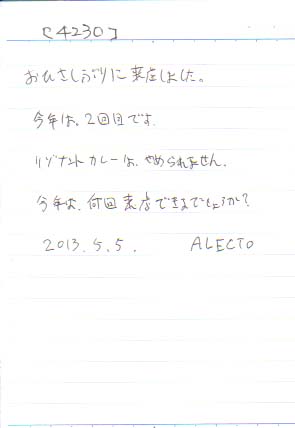 [4230]
おひさしぶりに来店しました。
今年は、2回目です。
リゾナントカレーは、やめられません。
今年は、何回来店できるでしょうか?
2013.5.5. ALECTO